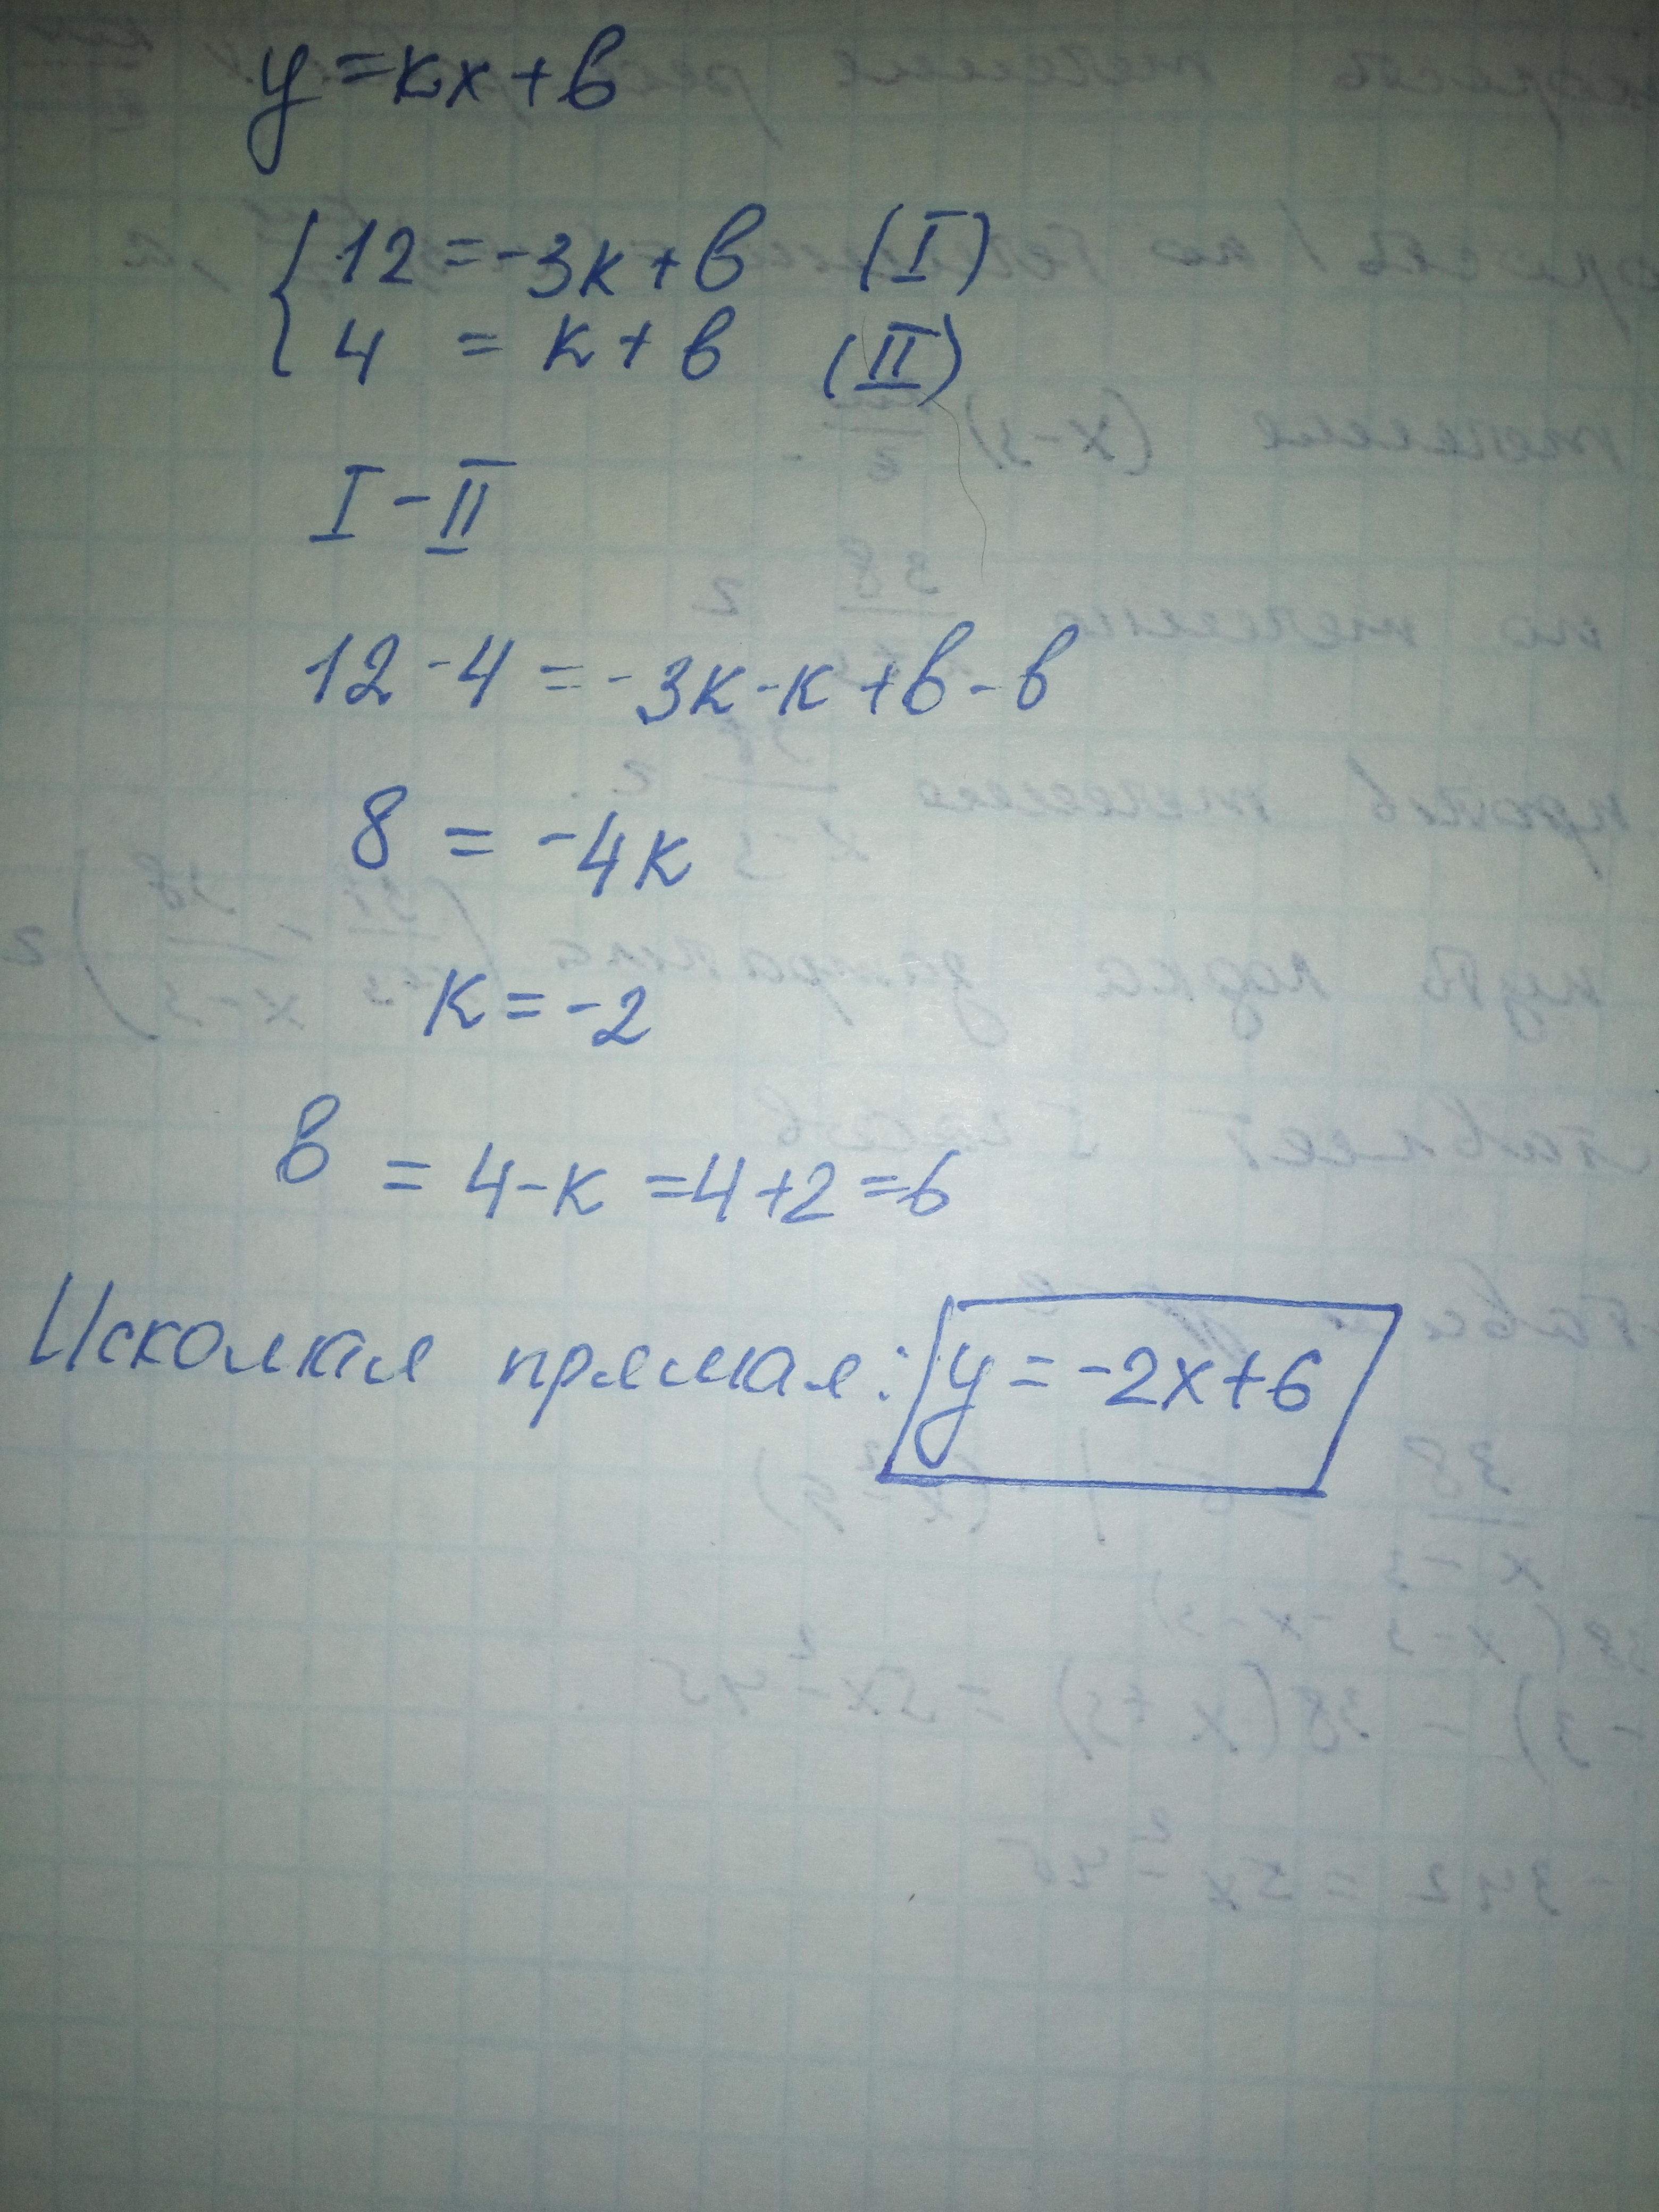 y=kx+b
{12=-3k+b (I)
4 = k+b (II)
I-II
12-4=-3k-k+b-b
8 = -4k
k=-2
b = 4-k=4+2=6
Искомая прямая: y=-2x+6